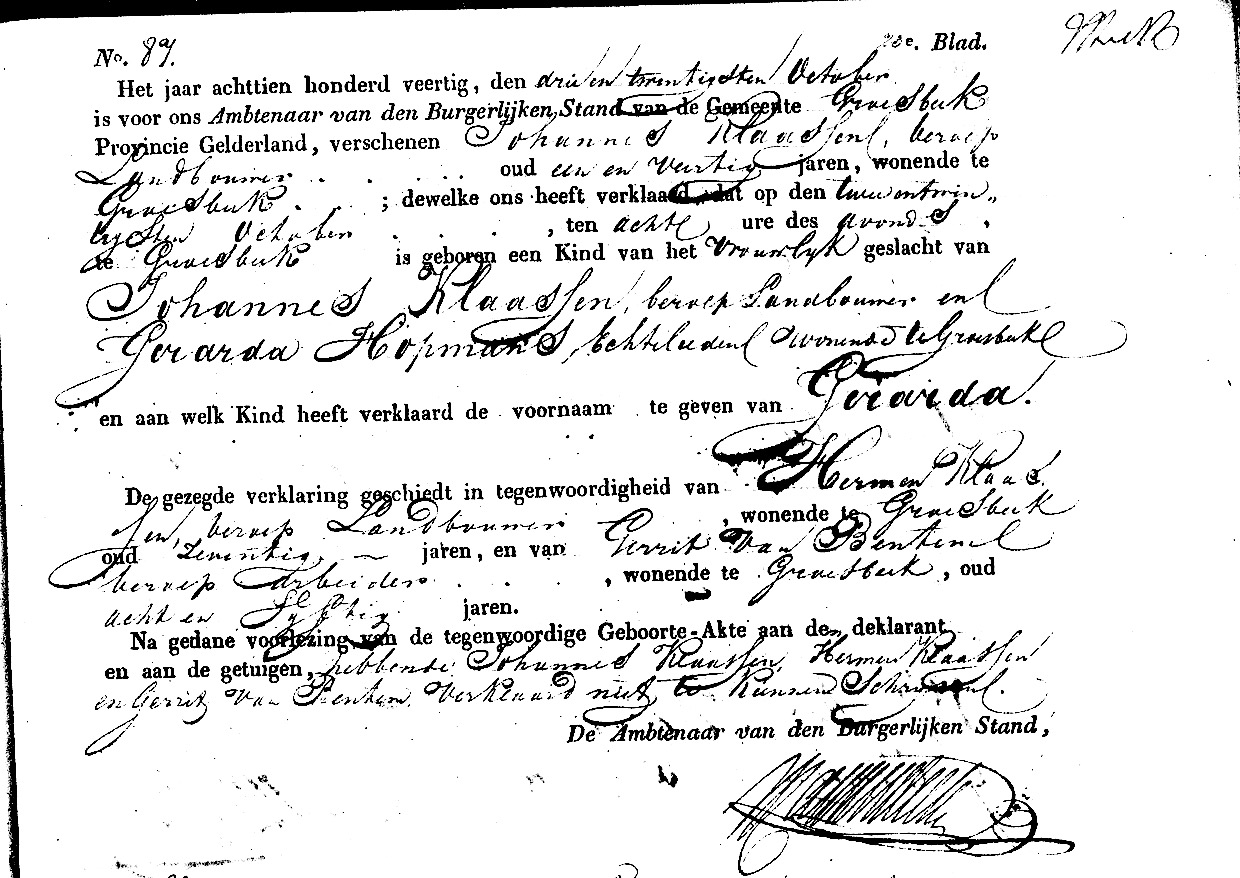 No. 87. de. Blad.
Het jaar achttien honderd veertig, den drie en twentigsten October
is voor ons Ambtenaar van den Burgerlijken Stand van de Gemeente Groesbeek
Provincie Gelderland, verschenen Johannes Klaassen, beroep
Landbouwer . . . . . oud een en veertig jaren, wonende te
Groesbeek . . ; dewelke ons heeft verklaard, dat op den tweeentwin„
tigsten October . . . , ten acht ure des avonds ,
te Groesbeek is geboren een Kind van het Vrouwlyk geslacht van
Johannes Klaassen, beroep Landbouwer en
Gerarda Hopmans, Echtelieden wonende te Groesbeek
en aan welk Kind heeft verklaard de voornaam te geven van Gerarda.
De gezegde verklaring geschiedt in tegenwoordigheid van Hermen Klaas
sen, beroep Landbouwer , wonende te Groesbeek
oud zeventig jaren, en van Gerrit Van Bentem
beroep Arbeider . . . , wonende te Groesbeek, oud
acht en Fyftig jaren.
Na gedane voorlezing van de tegenwoordige Geboorte-Akte aan den deklarant
en aan de getuigen, hebbende Johannes Klaassen, Hermen Klaassen
en Gerrit Van Bentem Verklaard niet te Kunnen Schryven.
De Ambtenaar van den Burgerlijken Stand,